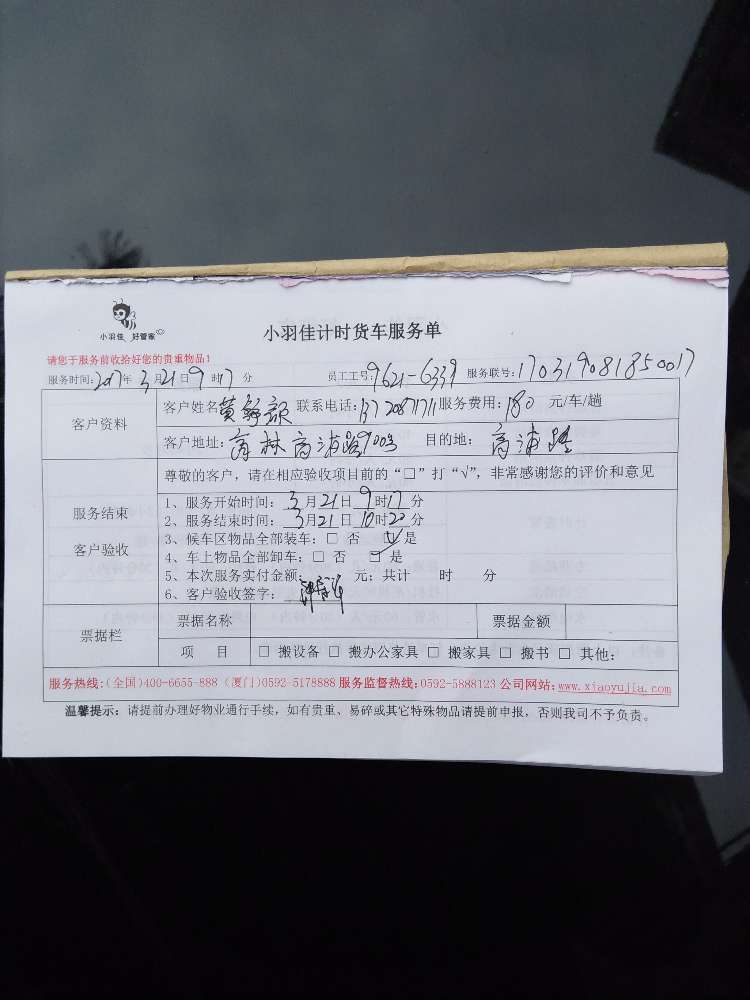 小羽佳 好管家
小羽佳计时货车服务单
请您于服务前收拾好您的贵重物品！
服务时间：2017年 3月21日 9时17分 员工工号：9621-6339 服务联号：170319081850017
客户资料
客户姓名 黄 联系电话： 服务费用：180 元/车/趟
客户地址： 林高浦路900号 目的地： 高浦路
尊敬的客户，请在相应验收项目前的“□”打“√”，非常感谢您的评价和意见
服务结束
客户验收
1、服务开始时间：3月21日9时17分
2、服务结束时间：3月21日10时20分
3、候车区物品全部装车：□ 否 □是
4、车上物品全部卸车：□ 否 □ 是
5、本次服务实付金额： 元；共计 时 分
6、客户验收签字：
票据栏
票据名称 票据金额
项 目 □ 搬设备 □ 搬办公家具 □ 搬家具 □ 搬书 □ 其他：
服务热线：(全国)400-6655-888 (厦门)0592-5178888 服务监督热线：0592-5888123 公司网站：www.xiaoyujia.com
温馨提示：请提前办理好物业通行手续，如有贵重、易碎或其它特殊物品请提前申报，否则我司不予负责。